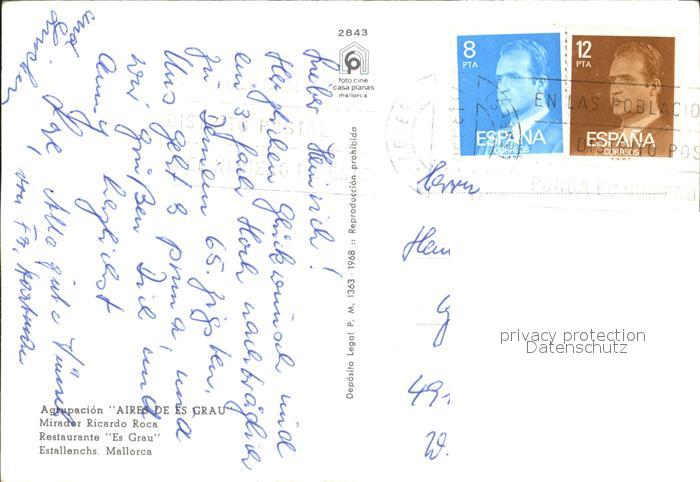 2843
foto cine
casa planas
mallorca
8
PTA
ESPAÑA
CORREOS
12
PTA
ESPAÑA
CORREOS
EN LAS POBLACIO
POSTAL
Lieber Heinrich!
Herzlichen Glückwunsch und
ein 3 fach Hoch nachträglich
zu Deinem 65. jigsten.
Uns geht's prima, und
wir grüßen Dich und
Anny herzlichst
Alles gute
und
von Fa.
Depósito Legal P. M. 1363 - 1968 :: Reproducción prohibida
Herrn
49
W.
privacy protection
Datenschutz
Agrupación "AIRES DE ES GRAU"
Mirador Ricardo Roca
Restaurante "Es Grau"
Estallenchs. Mallorca